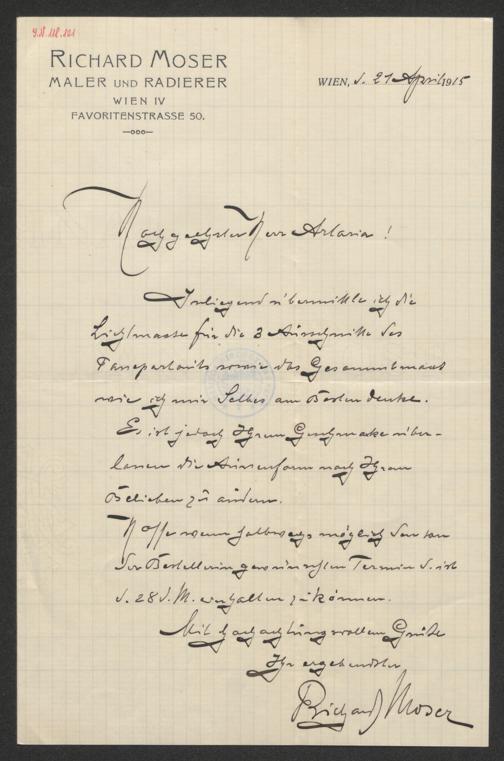 RICHARD MOSER
MALER UND RADIERER
WIEN IV
FAVORITENSTRASSE 50.
WIEN, d. 21 April 1915
Hochgeehrter Herr Artaria!
Inliegend übermittle ich die
Lichtmaasse für die 3 Ausschnitte des
Passepartouts sowie das Gesammtmaas
wie ich mir Selbes am Besten denke.
Es ist jedoch Ihrem Geschmacke über-
lassen die Aussenform nach Ihrem
Belieben zu ändern.
Hoffe wenn halbwegs möglich den von
der Bestellerin gewünschten Termin d. ist
d. 28 d. M. einhalten zu können.
Mit hochachtungsvollen Grüße
Ihr ergebenster
Richard Moser